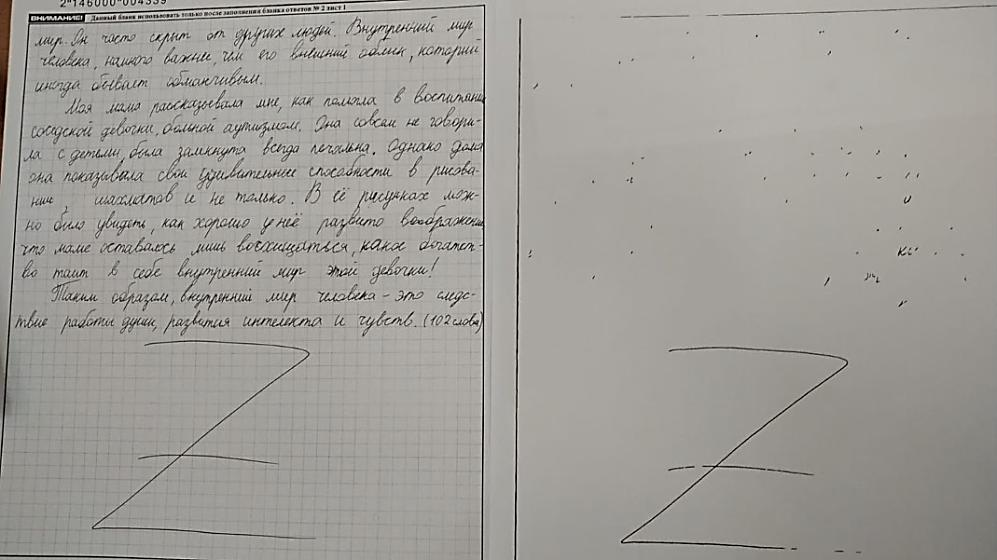 2"146000"004339
ВНИМАНИЕ! Данный бланк использовать только после заполнения бланка ответов № 2 лист 1
мир. Он часто скрыт от других людей. Внутренний мир
человека, намного важнее, чем его внешний облик, который
иногда бывает обманчивым.
Моя мама рассказывала мне, как помогла в воспитании
соседской девочки, больной аутизмом. Она совсем не говори-
ла с детьми, была замкнута всегда печальна. Однако дома
она показывала свои удивительные способности в рисова-
нии, шахматов и не только. В её рисунках мож-
но было увидеть, как хорошо у неё развито воображение
что маме оставалось лишь восхищаться, какое богатст-
во таит в себе внутренний мир этой девочки!
Таким образом, внутренний мир человека - это след-
ствие работы души, развития интелекта и чувств. (102 слова)